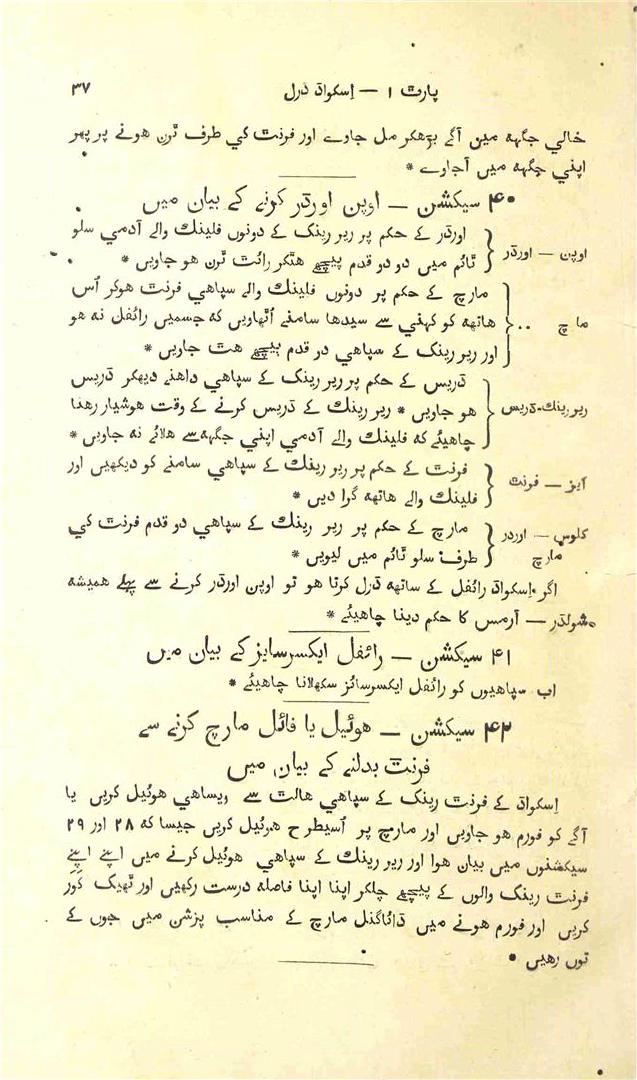 پارٹ ۱ — اِسکواڈ ڈرل ۳۷
خالي جگہہ مین آگے بڑھکر مل جاوے اور فرنٹ کي طرف ٹرن ھونے پر پھر
اپني جگہہ میں آجاوے *
۴۰ سیکشن — اوپن اورڈر کرنے کے بیان میں
اوپن — اورڈر { اورڈر کے حکم پر ریر رینک کے دونوں فلینک والے آدمي سلو
ٹائم میں دو دو قدم پیچھے ھٹکر رائٹ ٹرن ھو جاویں *
مارچ .. { مارچ کے حکم پر دونوں فلینک والے سپاھي فرنٹ ھوکر اُس
ھاتھہ کو کہني سے سیدھا سامنے اُٹھاویں کہ جسمیں رائفل نہ ھو
اور ریر رینک کے سپاھي دو قدم پیچھے ھٹ جاویں *
ریر رینک - ڈریس { ڈریس کے حکم پر ریر رینک کے سپاھي داھنے دیکھکر ڈریس
ھو جاویں * ریر رینک کے ڈریس کرنے کے وقت ھوشیار رھنا
چاھیئے کہ فلینک والے آدمي اپني جگہہ سے ھلائے نہ جاویں *
آیز — فرنٹ { فرنٹ کے حکم پر ریر رینک کے سپاھي سامنے کو دیکھیں اور
فلینک والے ھاتھہ گرا دیں *
کلوس — اورڈر مارچ { مارچ کے حکم پر ریر رینک کے سپاھي دو قدم فرنٹ کي
طرف سلو ٹائم میں لیویں *
اگر اِسکواڈ رائفل کے ساتھہ ڈرل کرتا ھو تو اوپن اورڈر کرنے سے پہلے ھمیشہ
شولڈر — آرمس کا حکم دینا چاھیئے *
۴۱ سیکشن — رائفل ایکسرسایز کے بیان میں
اب سپاھیوں کو رائفل ایکسرسائز سکھلانا چاھیئے *
۴۲ سیکشن — ھوئیل یا فائل مارچ کرنے سے
فرنٹ بدلنے کے بیان میں
اِسکواڈ کے فرنٹ رینک کے سپاھي ھالٹ سے ویساھي ھوئیل کریں یا
آگے کو فورم ھو جاویں اور مارچ پر اُسیطرح ھوئیل کریں جیسا کہ ۲۸ اور ۲۹
سیکشنوں میں بیان ھوا اور ریر رینک کے سپاھي ھوئیل کرنے میں اپنے اپنے
فرنٹ رینک والوں کے پیچھے چلکر اپنا اپنا فاصلہ درست رکھیں اور ٹھیک کَوَر
کریں اور فورم ھونے میں ڈائاگنل مارچ کے مناسب پزشن میں جوں کے
توں رھیں *